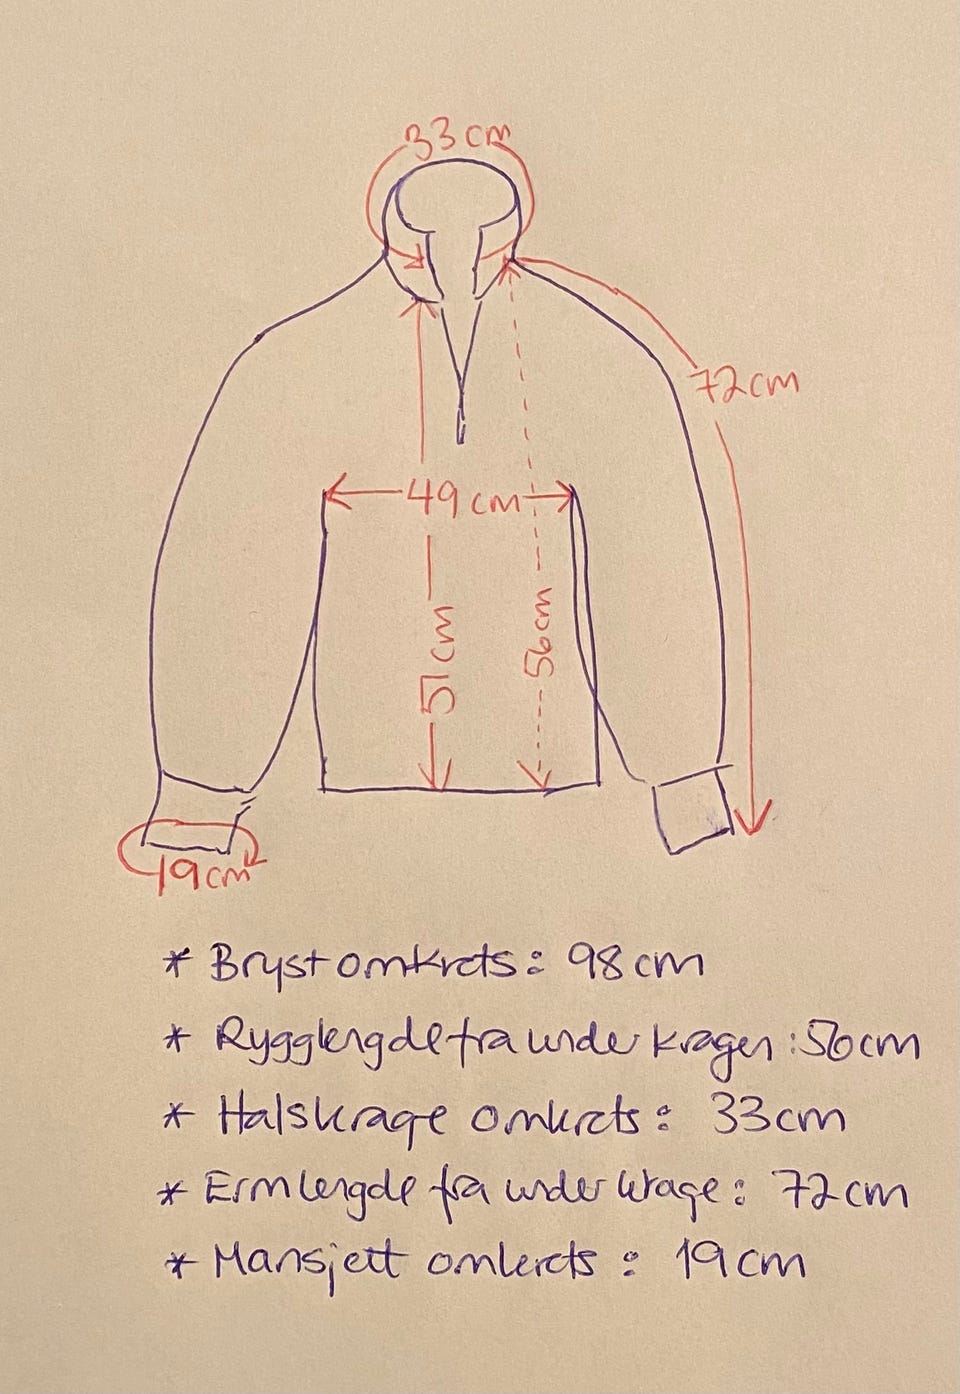 33 cm
72 cm
49 cm
51 cm
56 cm
19 cm
* Brystomkrets: 98 cm
* Rygglengde fra under kragen: 56 cm
* Halskrage omkrets: 33 cm
* Ermlengde fra under krage: 72 cm
* Mansjett omkrets: 19 cm